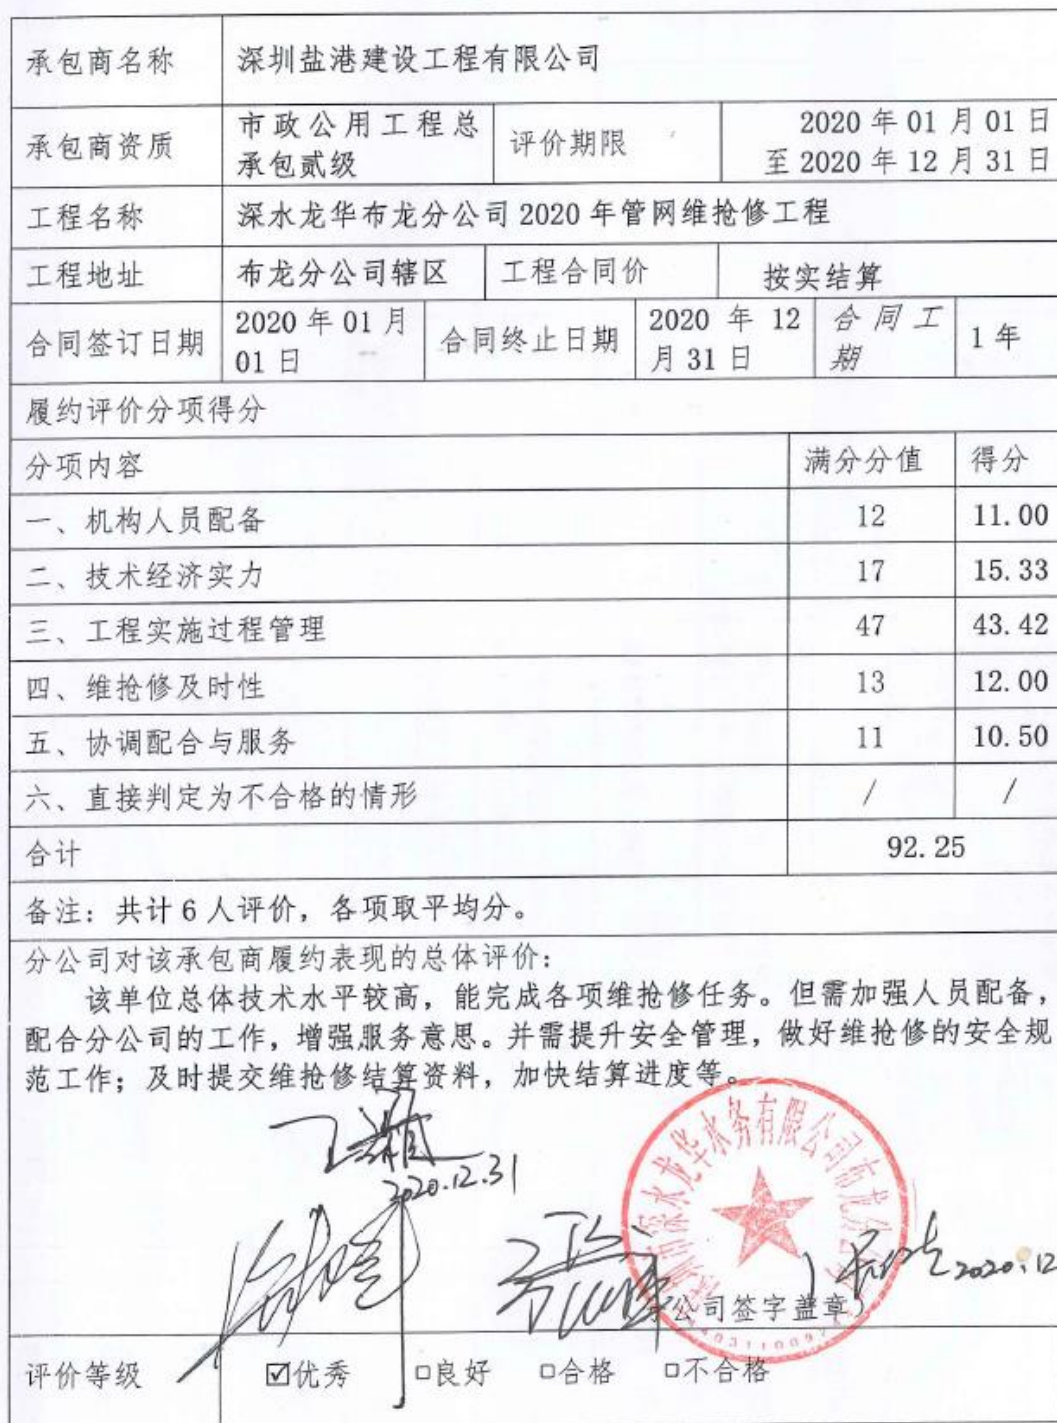 承包商名称 深圳盐港建设工程有限公司
承包商资质 市政公用工程总承包贰级 评价期限 2020 年 01 月 01 日至 2020 年 12 月 31 日
工程名称 深水龙华布龙分公司 2020 年管网维抢修工程
工程地址 布龙分公司辖区 工程合同价 按实结算
合同签订日期 2020 年 01 月 01 日 合同终止日期 2020 年 12 月 31 日 合同工期 1 年
履约评价分项得分
分项内容 满分分值 得分
一、机构人员配备 12 11.00
二、技术经济实力 17 15.33
三、工程实施过程管理 47 43.42
四、维抢修及时性 13 12.00
五、协调配合与服务 11 10.50
六、直接判定为不合格的情形 / /
合计 92.25
备注：共计 6 人评价，各项取平均分。
分公司对该承包商履约表现的总体评价：
该单位总体技术水平较高，能完成各项维抢修任务。但需加强人员配备，
配合分公司的工作，增强服务意思。并需提升安全管理，做好维抢修的安全规
范工作；及时提交维抢修结算资料，加快结算进度等。
2020.12.31
深圳市深水龙华水务有限公司布龙分公司
2020.12
公司签字盖章）
评价等级 ☑优秀 □良好 □合格 □不合格